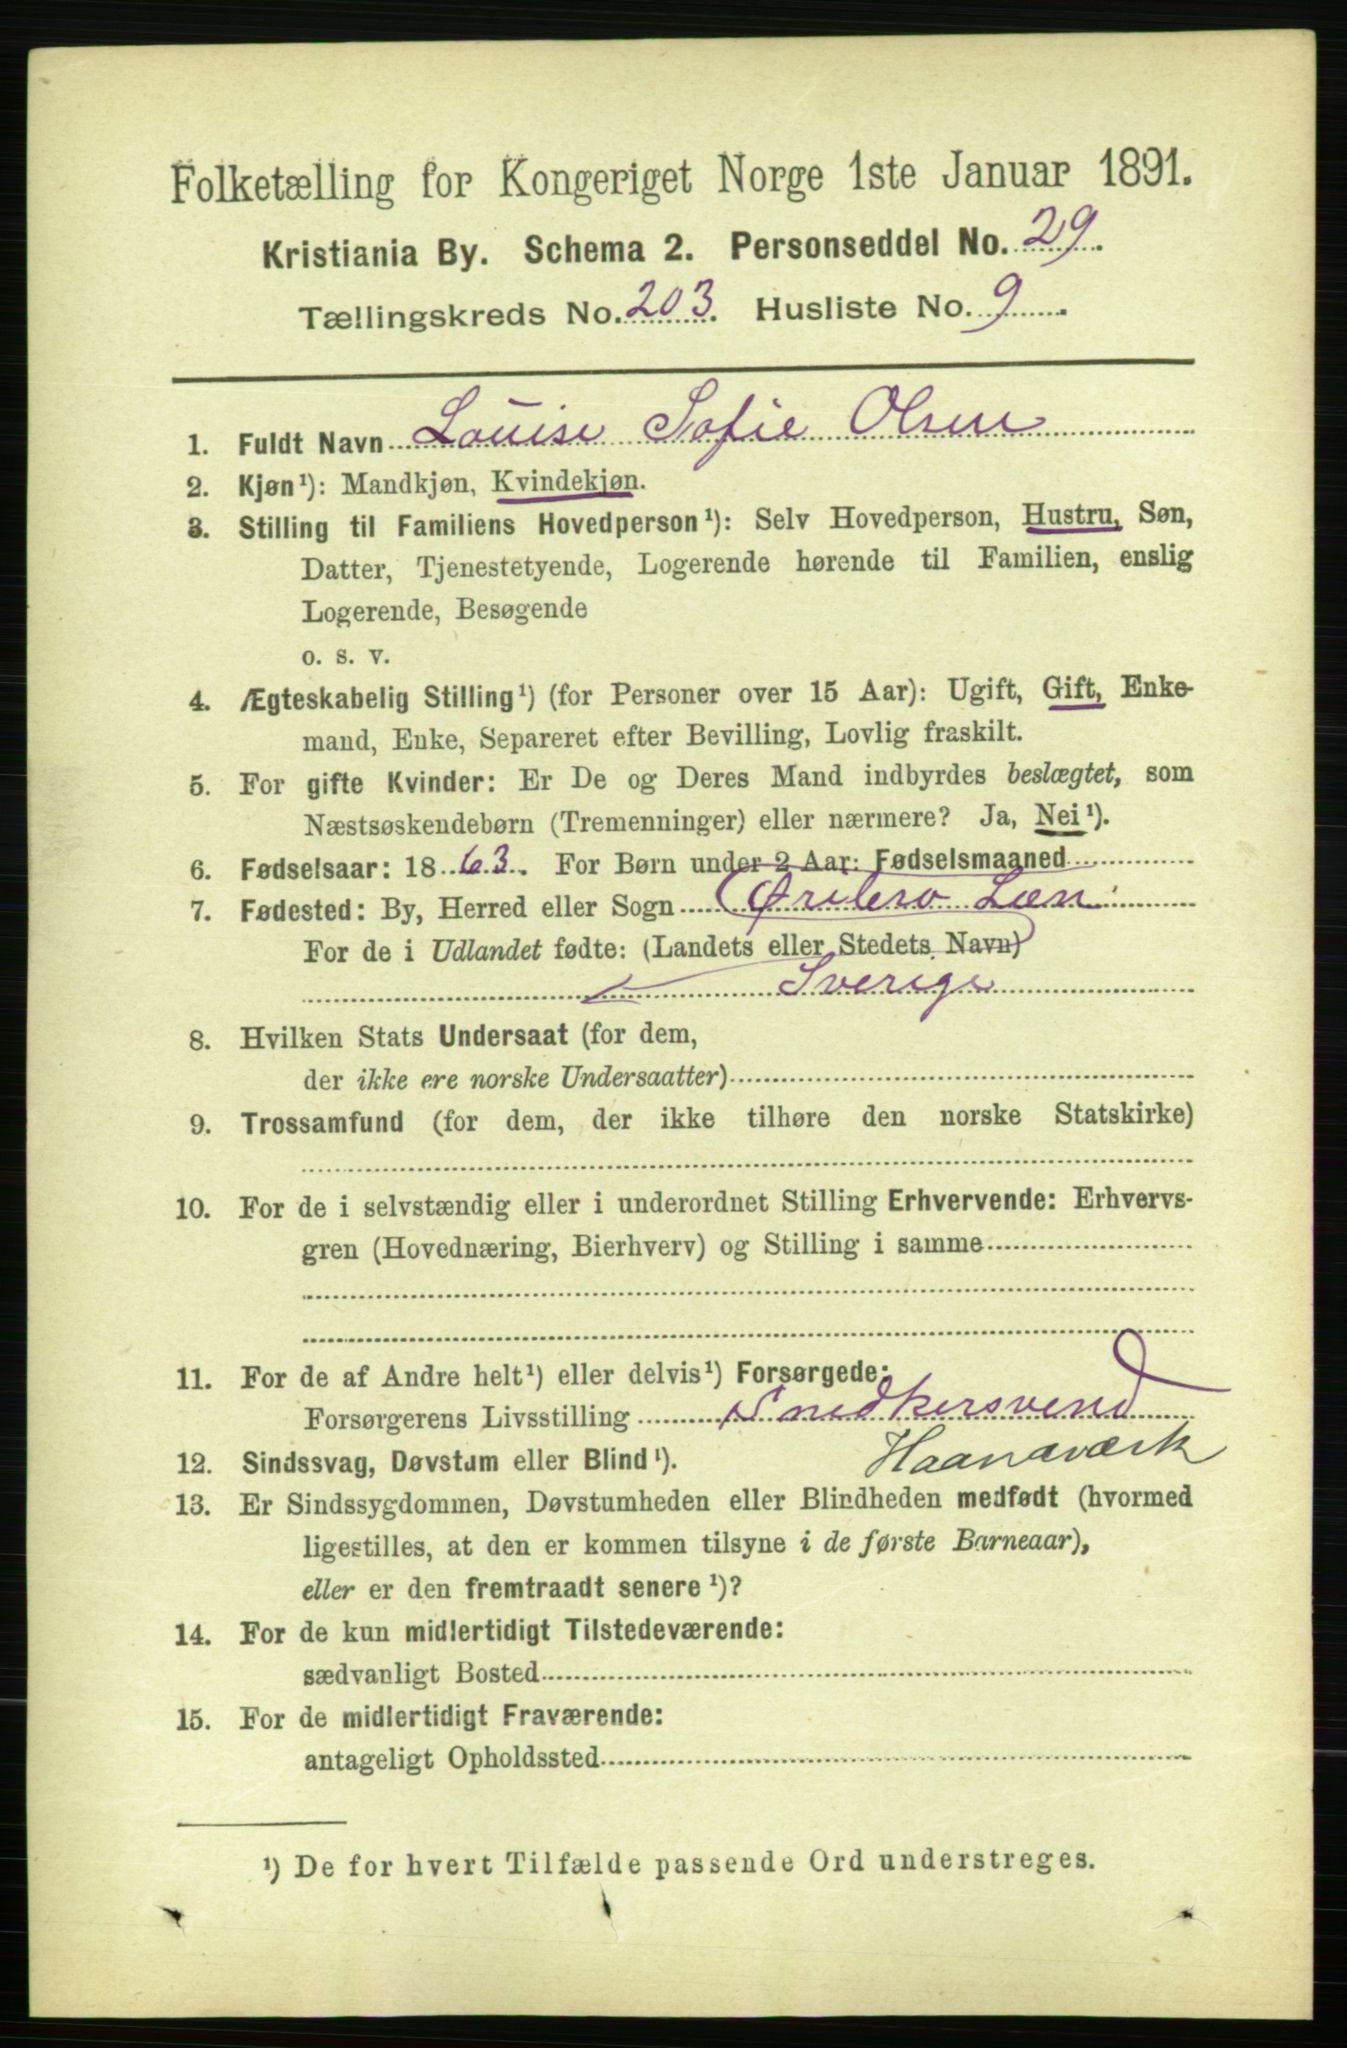 Folketælling for Kongeriget Norge 1ste Januar 1891.
Kristiania By. Schema 2. Personseddel No. 29.
Tællingskreds No. 203. Husliste No. 9.
1. Fuldt Navn Louise Sofie Olsen
2. Kjøn¹): Mandkjøn, Kvindekjøn.
3. Stilling til Familiens Hovedperson¹): Selv Hovedperson, Hustru, Søn,
Datter, Tjenestetyende, Logerende hørende til Familien, enslig
Logerende, Besøgende
o. s. v.
4. Ægteskabelig Stilling¹) (for Personer over 15 Aar): Ugift, Gift, Enke-
mand, Enke, Separeret efter Bevilling, Lovlig fraskilt.
5. For gifte Kvinder: Er De og Deres Mand indbyrdes beslægtet, som
Næstsøskendebørn (Tremenninger) eller nærmere? Ja, Nei¹).
6. Fødselsaar: 1863. For Børn under 2 Aar: Fødselsmaaned
7. Fødested: By, Herred eller Sogn Ørebro Læn
For de i Udlandet fødte: (Landets eller Stedets Navn)
Sverige
8. Hvilken Stats Undersaat (for dem,
der ikke ere norske Undersaatter)
9. Trossamfund (for dem, der ikke tilhøre den norske Statskirke)
10. For de i selvstændig eller i underordnet Stilling Erhvervende: Erhvervs-
gren (Hovednæring, Bierhverv) og Stilling i samme
11. For de af Andre helt¹) eller delvis¹) Forsørgede:
Forsørgerens Livsstilling Snedkersvend
Haandværk
12. Sindssvag, Døvstum eller Blind¹).
13. Er Sindssygdommen, Døvstumheden eller Blindheden medfødt (hvormed
ligestilles, at den er kommen tilsyne i de første Barneaar),
eller er den fremtraadt senere¹)?
14. For de kun midlertidigt Tilstedeværende:
sædvanligt Bosted
15. For de midlertidigt Fraværende:
antageligt Opholdssted
¹) De for hvert Tilfælde passende Ord understreges.